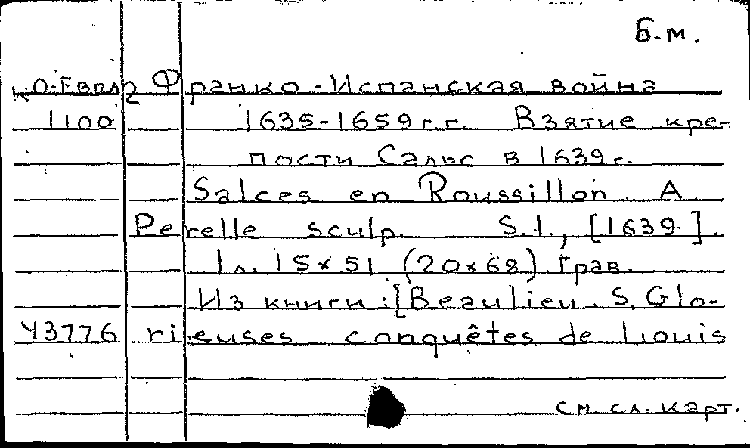 Б.м.
КО: Евпл2 Франко-Испанская война
1100 1635-1659 г.г. Взятие кре-
пости Сальс в 1639 г.
Salces en Roussillon. A
Perelle sculp. S.l., [1639].
1 л. 15×51 (20×68) Грав.
Из книги: [Beaulieu. S. Glo-
43776 rieuses conquêtes de Louis
см. сл. карт.